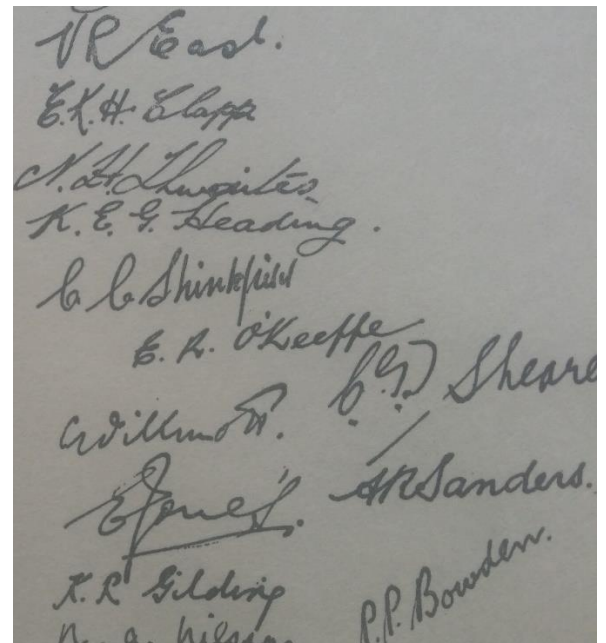 V R East.
E. K. H. Clapp
N. H. Thwaites
K. E. G. Heading.
C C Shinkfield
E. A. O'Keeffe
C. G. Sheare
Willmott.
E Jones.
A R Sanders.
K. R Gilding
P. P. Bowden.
Wilson